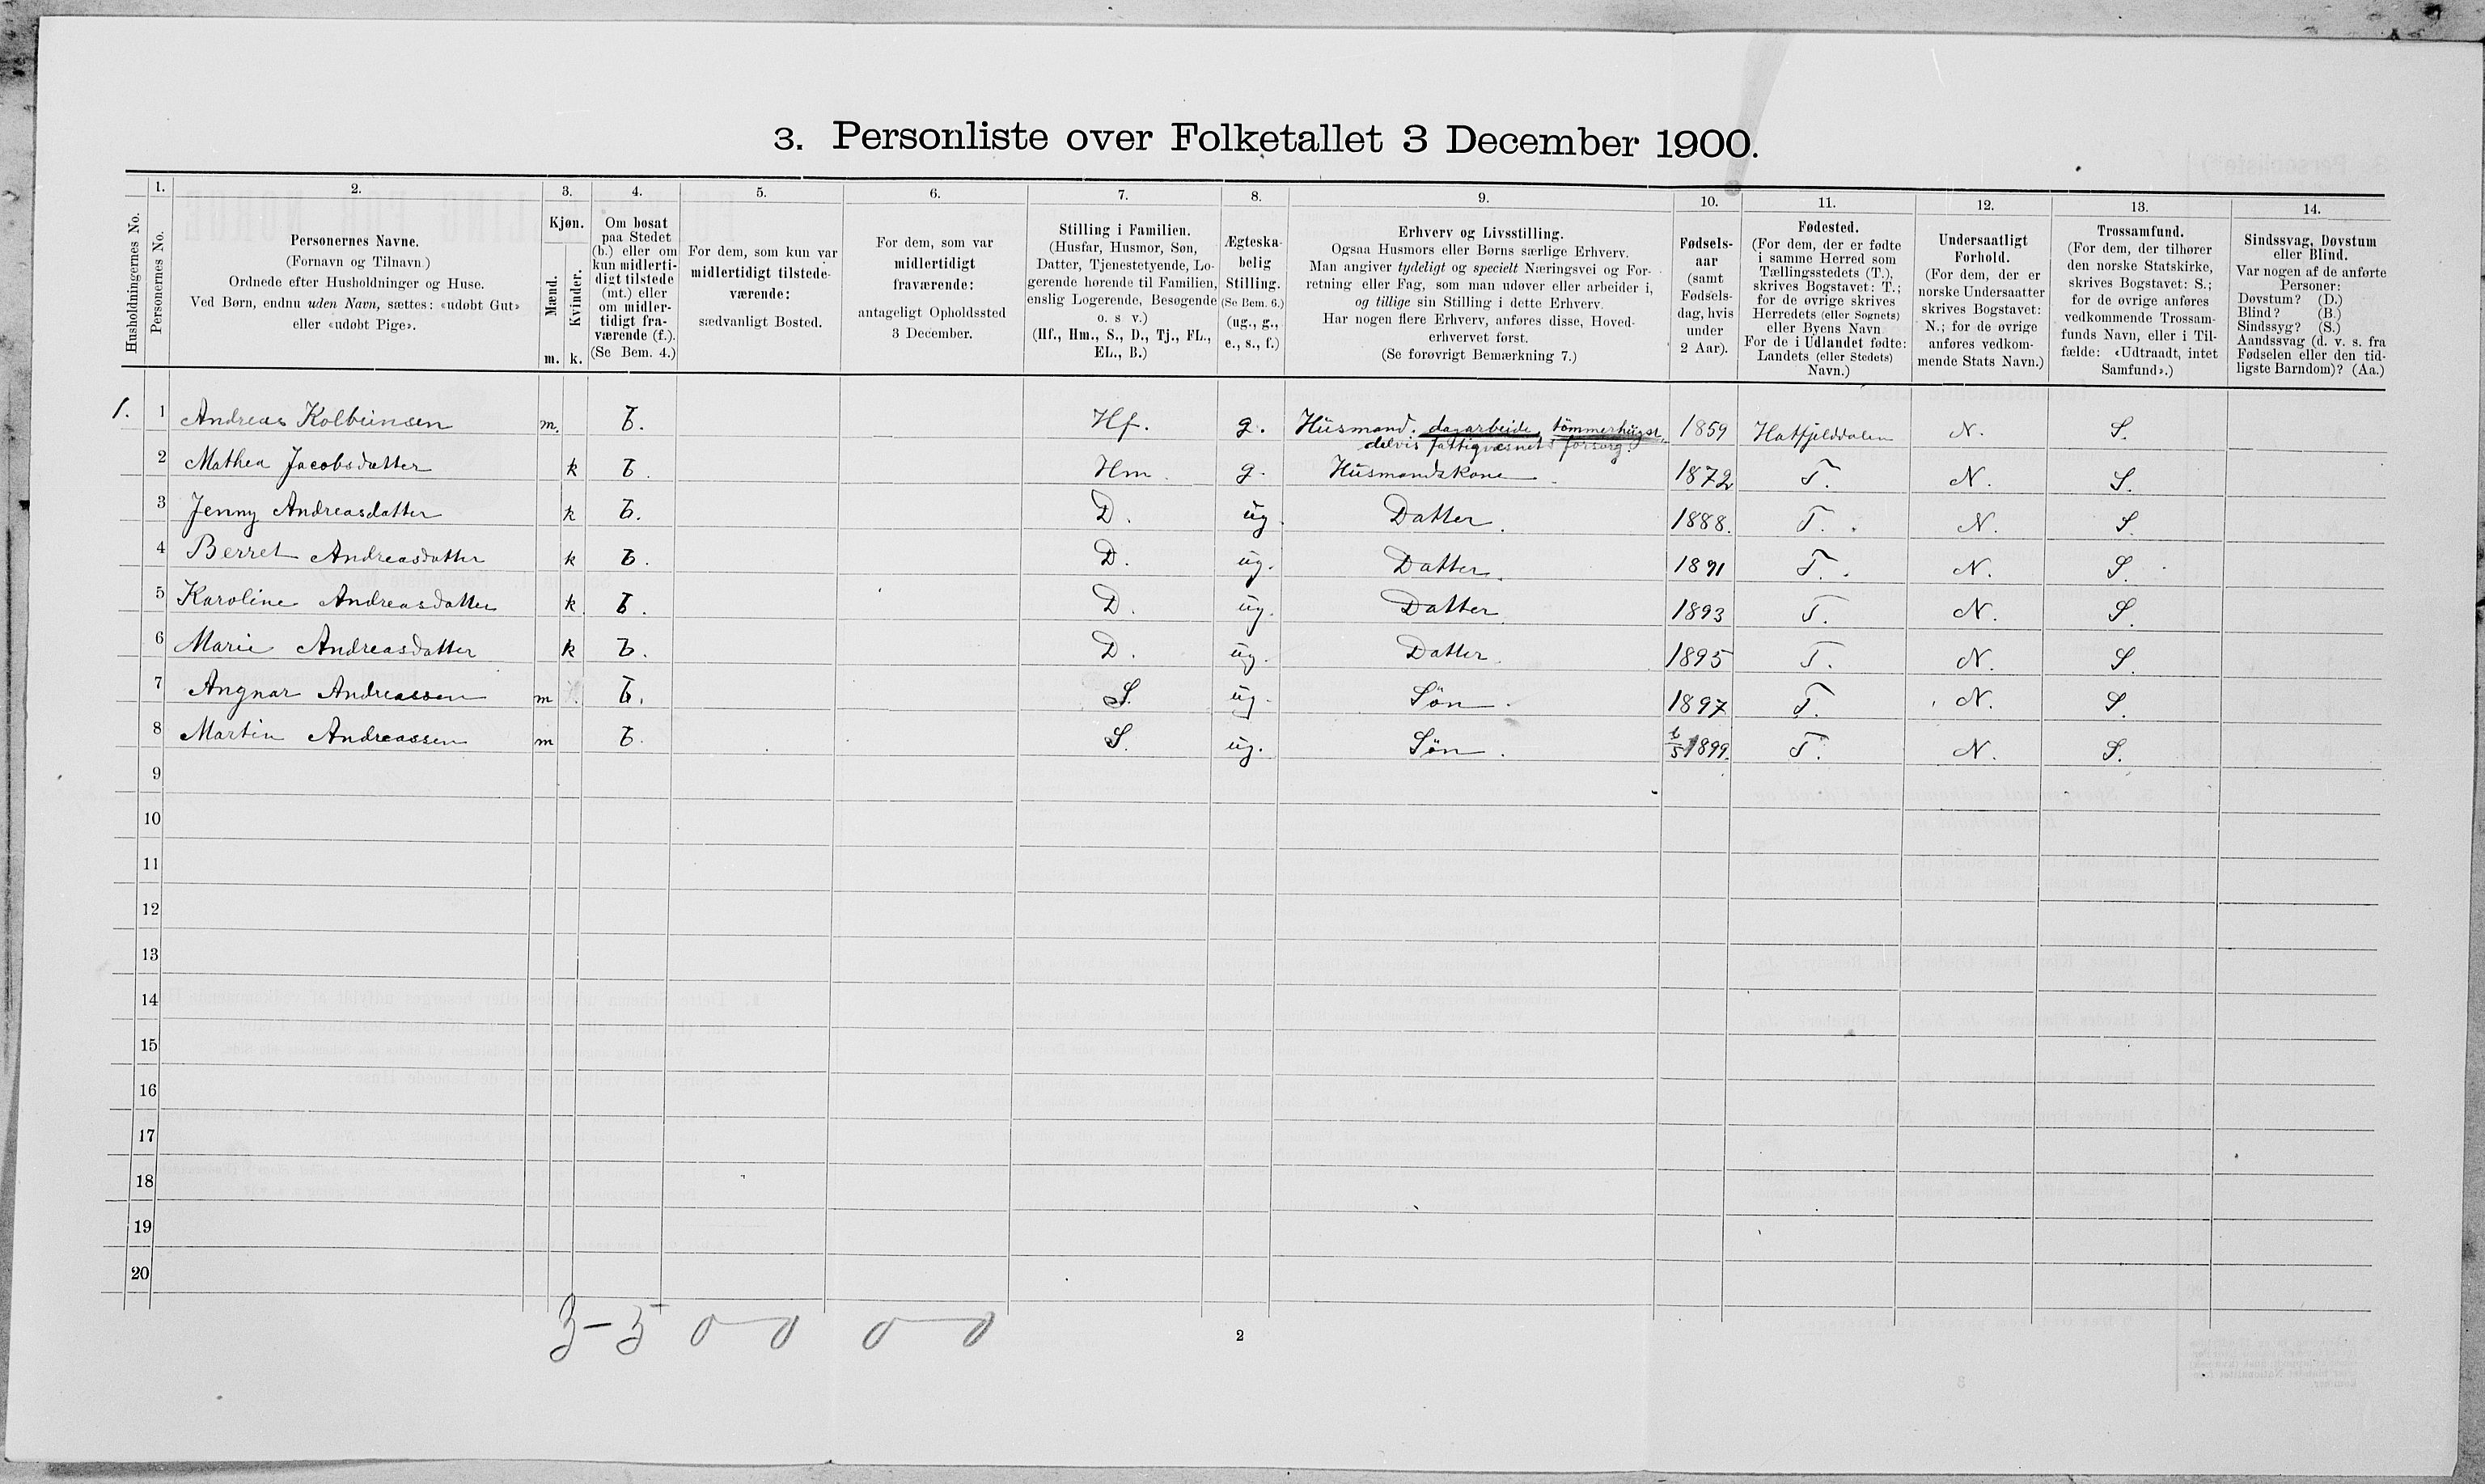 3. Personliste over Folketallet 3 December 1900.
1. 2. 3. 4. 5. 6. 7. 8. 9. 10. 11. 12. 13. 14.
Husholdningernes No.
Personernes No.
Personernes Navne.
(Fornavn og Tilnavn)
Ordnede efter Husholdninger og Huse.
Ved Børn, endnu uden Navn, sættes: «udøbt Gut»
eller «udøbt Pige».
Kjøn.
Mænd.
Kvinder.
m. k.
Om bosat
paa Stedet
(b.) eller om
kun midlerti-
digt tilstede
(mt.) eller
om midler-
tidigt fra-
værende (f.).
(Se Bem. 4.)
For dem, som kun var
midlertidigt tilstede-
værende:
sædvanligt Bosted.
For dem, som var
midlertidigt
fraværende:
antageligt Opholdssted
3 December.
Stilling i Familien.
(Husfar, Husmor, Søn,
Datter, Tjenestetyende, Lo-
gerende hørende til Familien,
enslig Logerende, Besøgende
o. s v.)
(Hf., Hm., S., D., Tj., FL.,
EL., B.)
Ægteska-
belig
Stilling.
(Se Bem. 6.)
(ug., g.,
e., s., f.)
Erhverv og Livsstilling.
Ogsaa Husmors eller Børns særlige Erhverv.
Man angiver tydeligt og specielt Næringsvei og For-
retning eller Fag, som man udøver eller arbeider i,
og tillige sin Stilling i dette Erhverv.
Har nogen flere Erhverv, anføres disse, Hoved-
erhvervet først.
(Se forøvrigt Bemærkning 7.)
Fødsels-
aar
(samt
Fødsels-
dag, hvis
under
2 Aar).
Fødested.
(For dem, der er fødte
i samme Herred som
Tællingsstedets (T.),
skrives Bogstavet: T.;
for de øvrige skrives
Herredets (eller Sognets)
eller Byens Navn
For de i Udlandet fødte:
Landets (eller Stedets)
Navn.)
Undersaatligt
Forhold.
(For dem, der er
norske Undersaatter
skrives Bogstavet:
N.; for de øvrige
anføres vedkom-
mende Stats Navn.)
Trossamfund.
(For dem, der tilhører
den norske Statskirke,
skrives Bogstavet: S.;
for de øvrige anføres
vedkommende Trossam-
funds Navn, eller i Til-
fælde: «Udtraadt, intet
Samfund».)
Sindssvag, Døvstum
eller Blind.
Var nogen af de anførte
Personer:
Døvstum? (D.)
Blind? (B.)
Sindssyg? (S.)
Aandssvag (d. v. s. fra
Fødselen eller den tid-
ligste Barndom)? (Aa.)
1. 1 Andreas Kolbeinsen m. b. Hf. g. Husmand. dagarbeide, tømmerhugst, 1859 Hatfjelddalen N. S.
delvis fattigvæsnets forsørg.
2 Mathea Jacobsdatter k b. Hm. g. Husmandskone 1872 T. N. S.
3 Jenny Andreasdatter k b. D. ug. Datter. 1888. T. N. S.
4 Berret Andreasdatter k b. D. ug. Datter. 1891 T. N. S.
5 Karoline Andreasdatter k. b. D. ug. Datter. 1893 T. N. S.
6 Marie Andreasdatter k b. D. ug. Datter. 1895 T. N. S.
7 Angnar Andreassen m b. S. ug. Søn. 1897 T. N. S.
8 Martin Andreassen m b. S. ug. Søn. 6/5 1899. T. N. S.
9
10
11
12
13
14
15
16
17
18
19
20
3-5 0-0 0-0
2